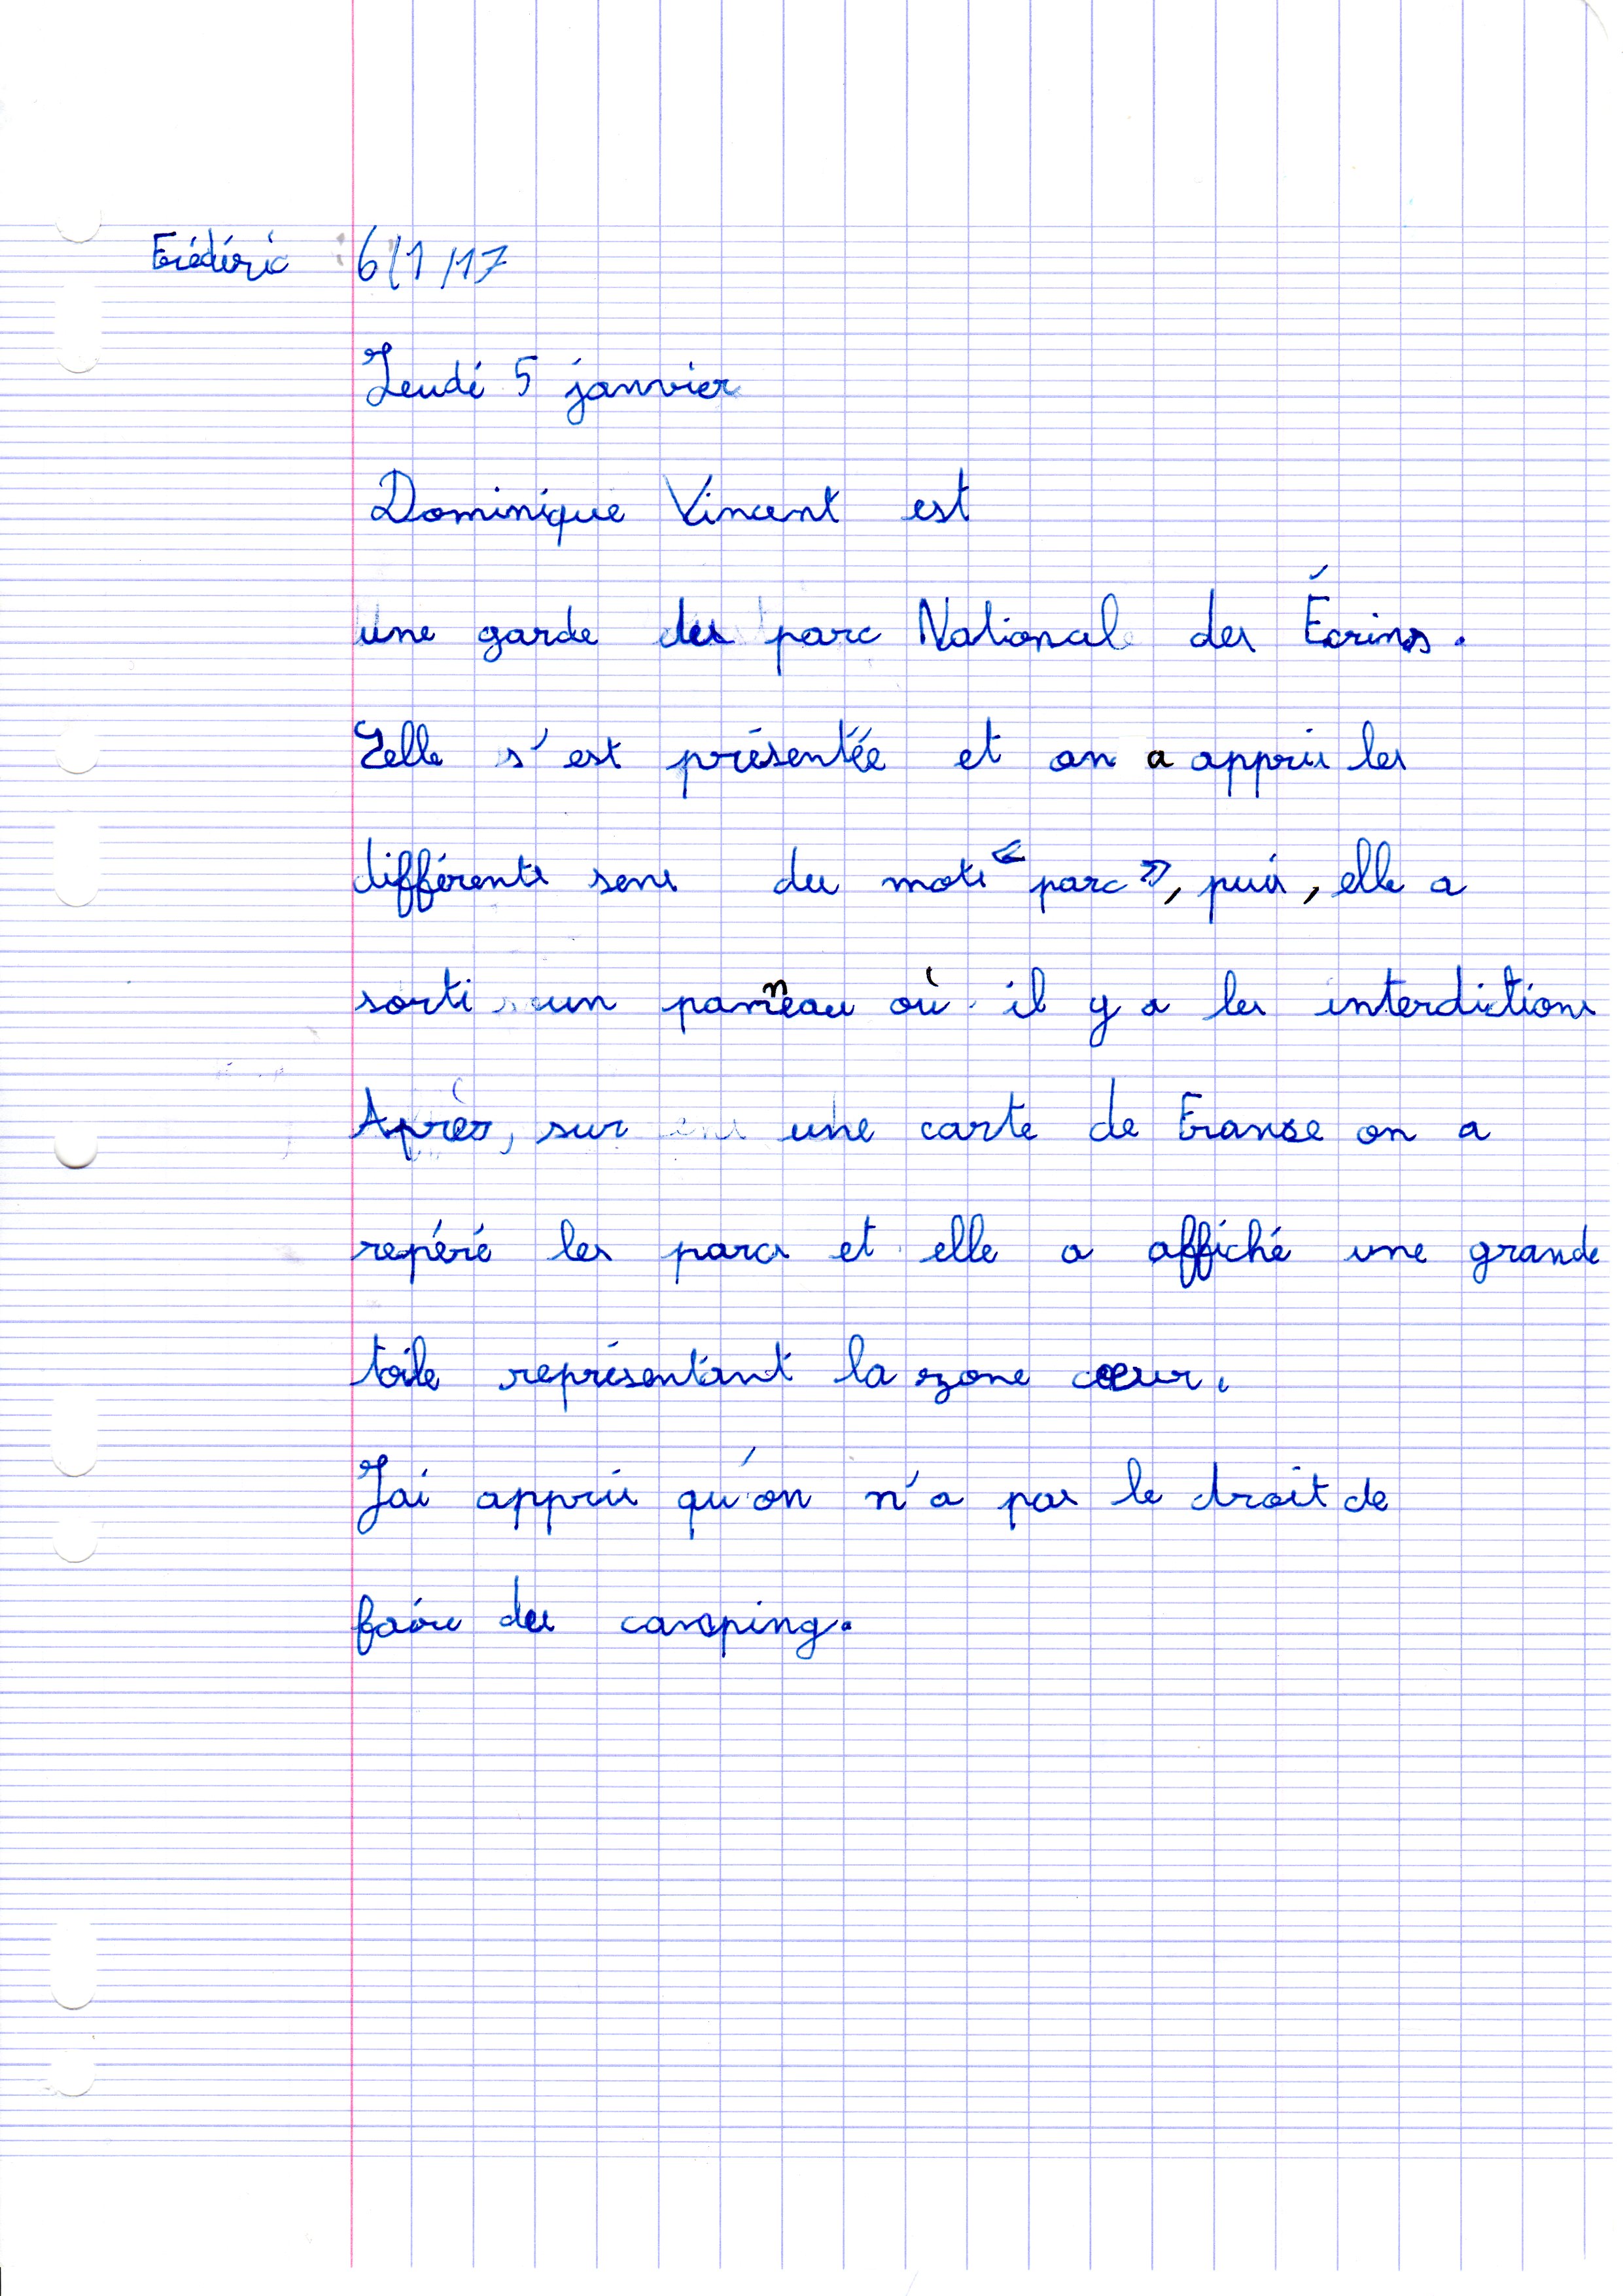 Frédéric 6/1/17
Jeudi 5 janvier
Dominique Vincent est
une garde du parc National des Écrins.
Elle s'est présentée et on a appris les
différents sens du mots " parc ", puis, elle a
sorti un panneau où il y a les interdictions
Après, sur une carte de France on a
repéré les parcs et elle a affiché une grande
toile représentant la zone cœur.
J'ai appris qu'on n'a pas le droit de
faire du camping.